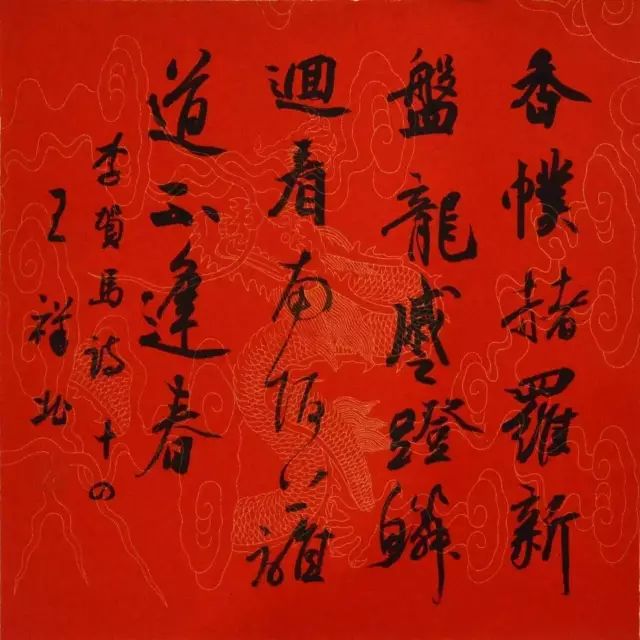 香幞赭羅新
盤龍蹙蹬鱗
迴看南陌上誰
道不逢春
李賀馬詩十四
王祥北